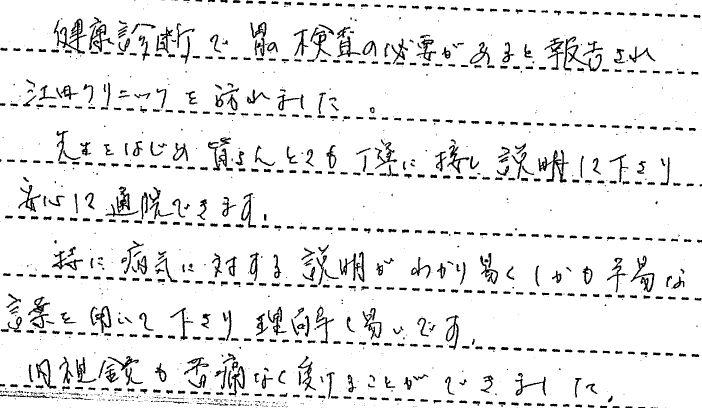 健康診断で胃の検査の必要があると報告され
江田クリニックを訪れました。
先生をはじめ皆さんとても丁寧に接し説明して下さり
安心して通院できます。
特に病気に対する説明がわかり易くしかも平易な
言葉を用いて下さり理解し易いです。
内視鏡も苦痛なく受けることができました。